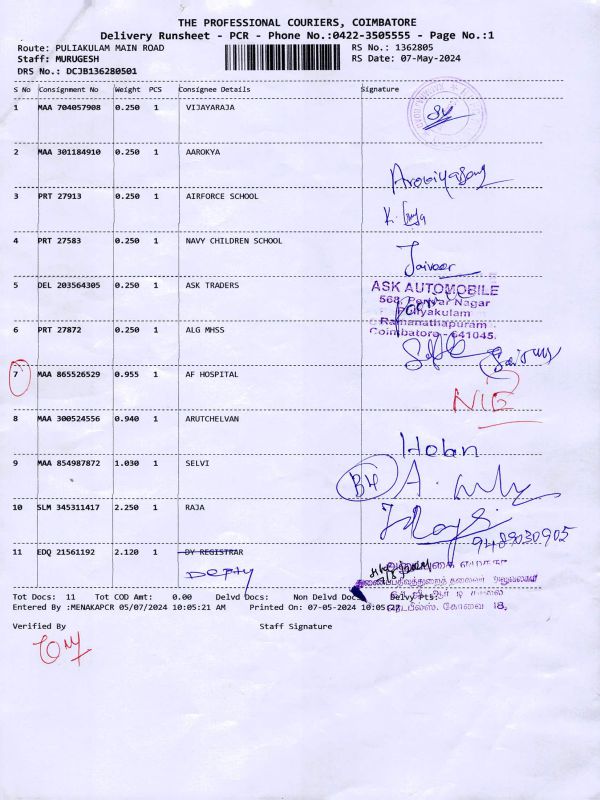 THE PROFESSIONAL COURIERS, COIMBATORE
Delivery Runsheet - PCR - Phone No.:0422-3505555 - Page No.:1
Route: PULIAKULAM MAIN ROAD RS No.: 1362805
Staff: MURUGESH RS Date: 07-May-2024
DRS No.: DCJB136280501
S No Consignment No Weight PCS Consignee Details Signature
1 MAA 704057908 0.250 1 VIJAYARAJA
2 MAA 301184910 0.250 1 AAROKYA
3 PRT 27913 0.250 1 AIRFORCE SCHOOL
4 PRT 27583 0.250 1 NAVY CHILDREN SCHOOL
Jaiveer
5 DEL 203564305 0.250 1 ASK TRADERS
ASK AUTOMOBILE
568, Periyar Nagar
Puliyakulam
Ramanathapuram
Coimbatore - 641045.
6 PRT 27872 0.250 1 ALG MHSS
7 MAA 865526529 0.955 1 AF HOSPITAL
8 MAA 300524556 0.940 1 ARUTCHELVAN
9 MAA 854987872 1.030 1 SELVI
10 SLM 345311417 2.250 1 RAJA
9489030905
11 EDQ 21561192 2.120 1 DY REGISTRAR
DEPTY
Tot Docs: 11 Tot COD Amt: 0.00 Delvd Docs: Non Delvd Docs: Delvy Pts:
Entered By :MENAKAPCR 05/07/2024 10:05:21 AM Printed On: 07-05-2024 10:05:22
Verified By Staff Signature